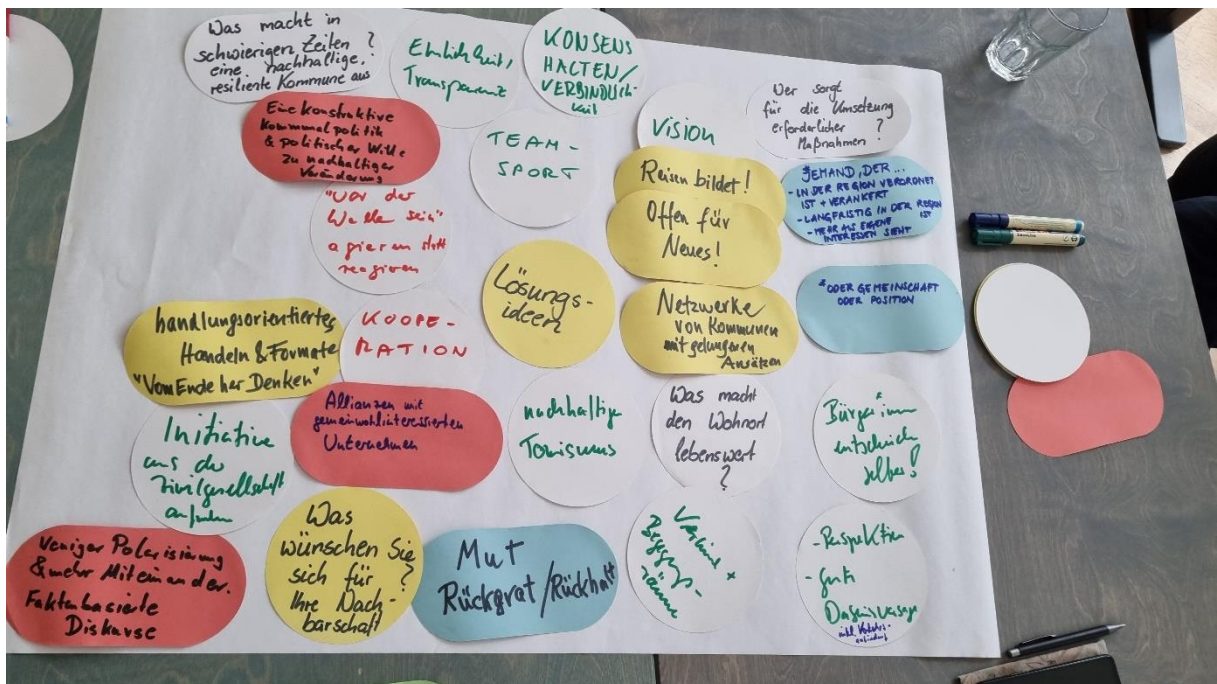 Was macht in
schwierigen Zeiten ?
eine nachhaltige,
resiliente Kommune aus
Ehrlichkeit,
Transparenz
KONSENS
HALTEN/
VERBINDLICH-
keit
Eine konstruktive
Kommunalpolitik
& politischer Wille
zu nachhaltiger
Veränderung
TEAM-
SPORT
Vision
Wer sorgt
für die Umsetzung
erforderlicher ?
Maßnahmen
"vor der
Welle sein"
agieren statt
reagieren
Reisen bildet!
Offen für
Neues!
*JEMAND, DER ...
- IN DER REGION VERORDNET
IST + VERANKERT
- LANGFRISTIG IN DER REGION
IST
- MEHR ALS EIGENE
INTERESSEN SIEHT
Lösungs-
ideen
Netzwerke
von Kommunen
mit gelungenen
Ansätzen
* ODER GEMEINSCHAFT
ODER POSITION
handlungsorientiertes
Handeln & Formate
"Vom Ende her Denken"
KOOPE-
RATION
Initiative
aus der
Zivilgesellschaft
Allianzen mit
gemeinwohlinteressierten
Unternehmen
nachhaltige
Tourismus
Was macht
den Wohnort
lebenswert
?
Bürger*innen
entscheiden
selber!
Weniger Polarisierung
& mehr Miteinander.
Faktenbasierte
Diskurse
Was
wünschen Sie
sich für ?
Ihre Nach-
barschaft
Mut
Rückgrat/Rückhalt
Vereine +
Begegnungs-
räume
- Perspektiven
- Gute
Daseinsvorsorge
inkl. Verkehrs-
anbindung